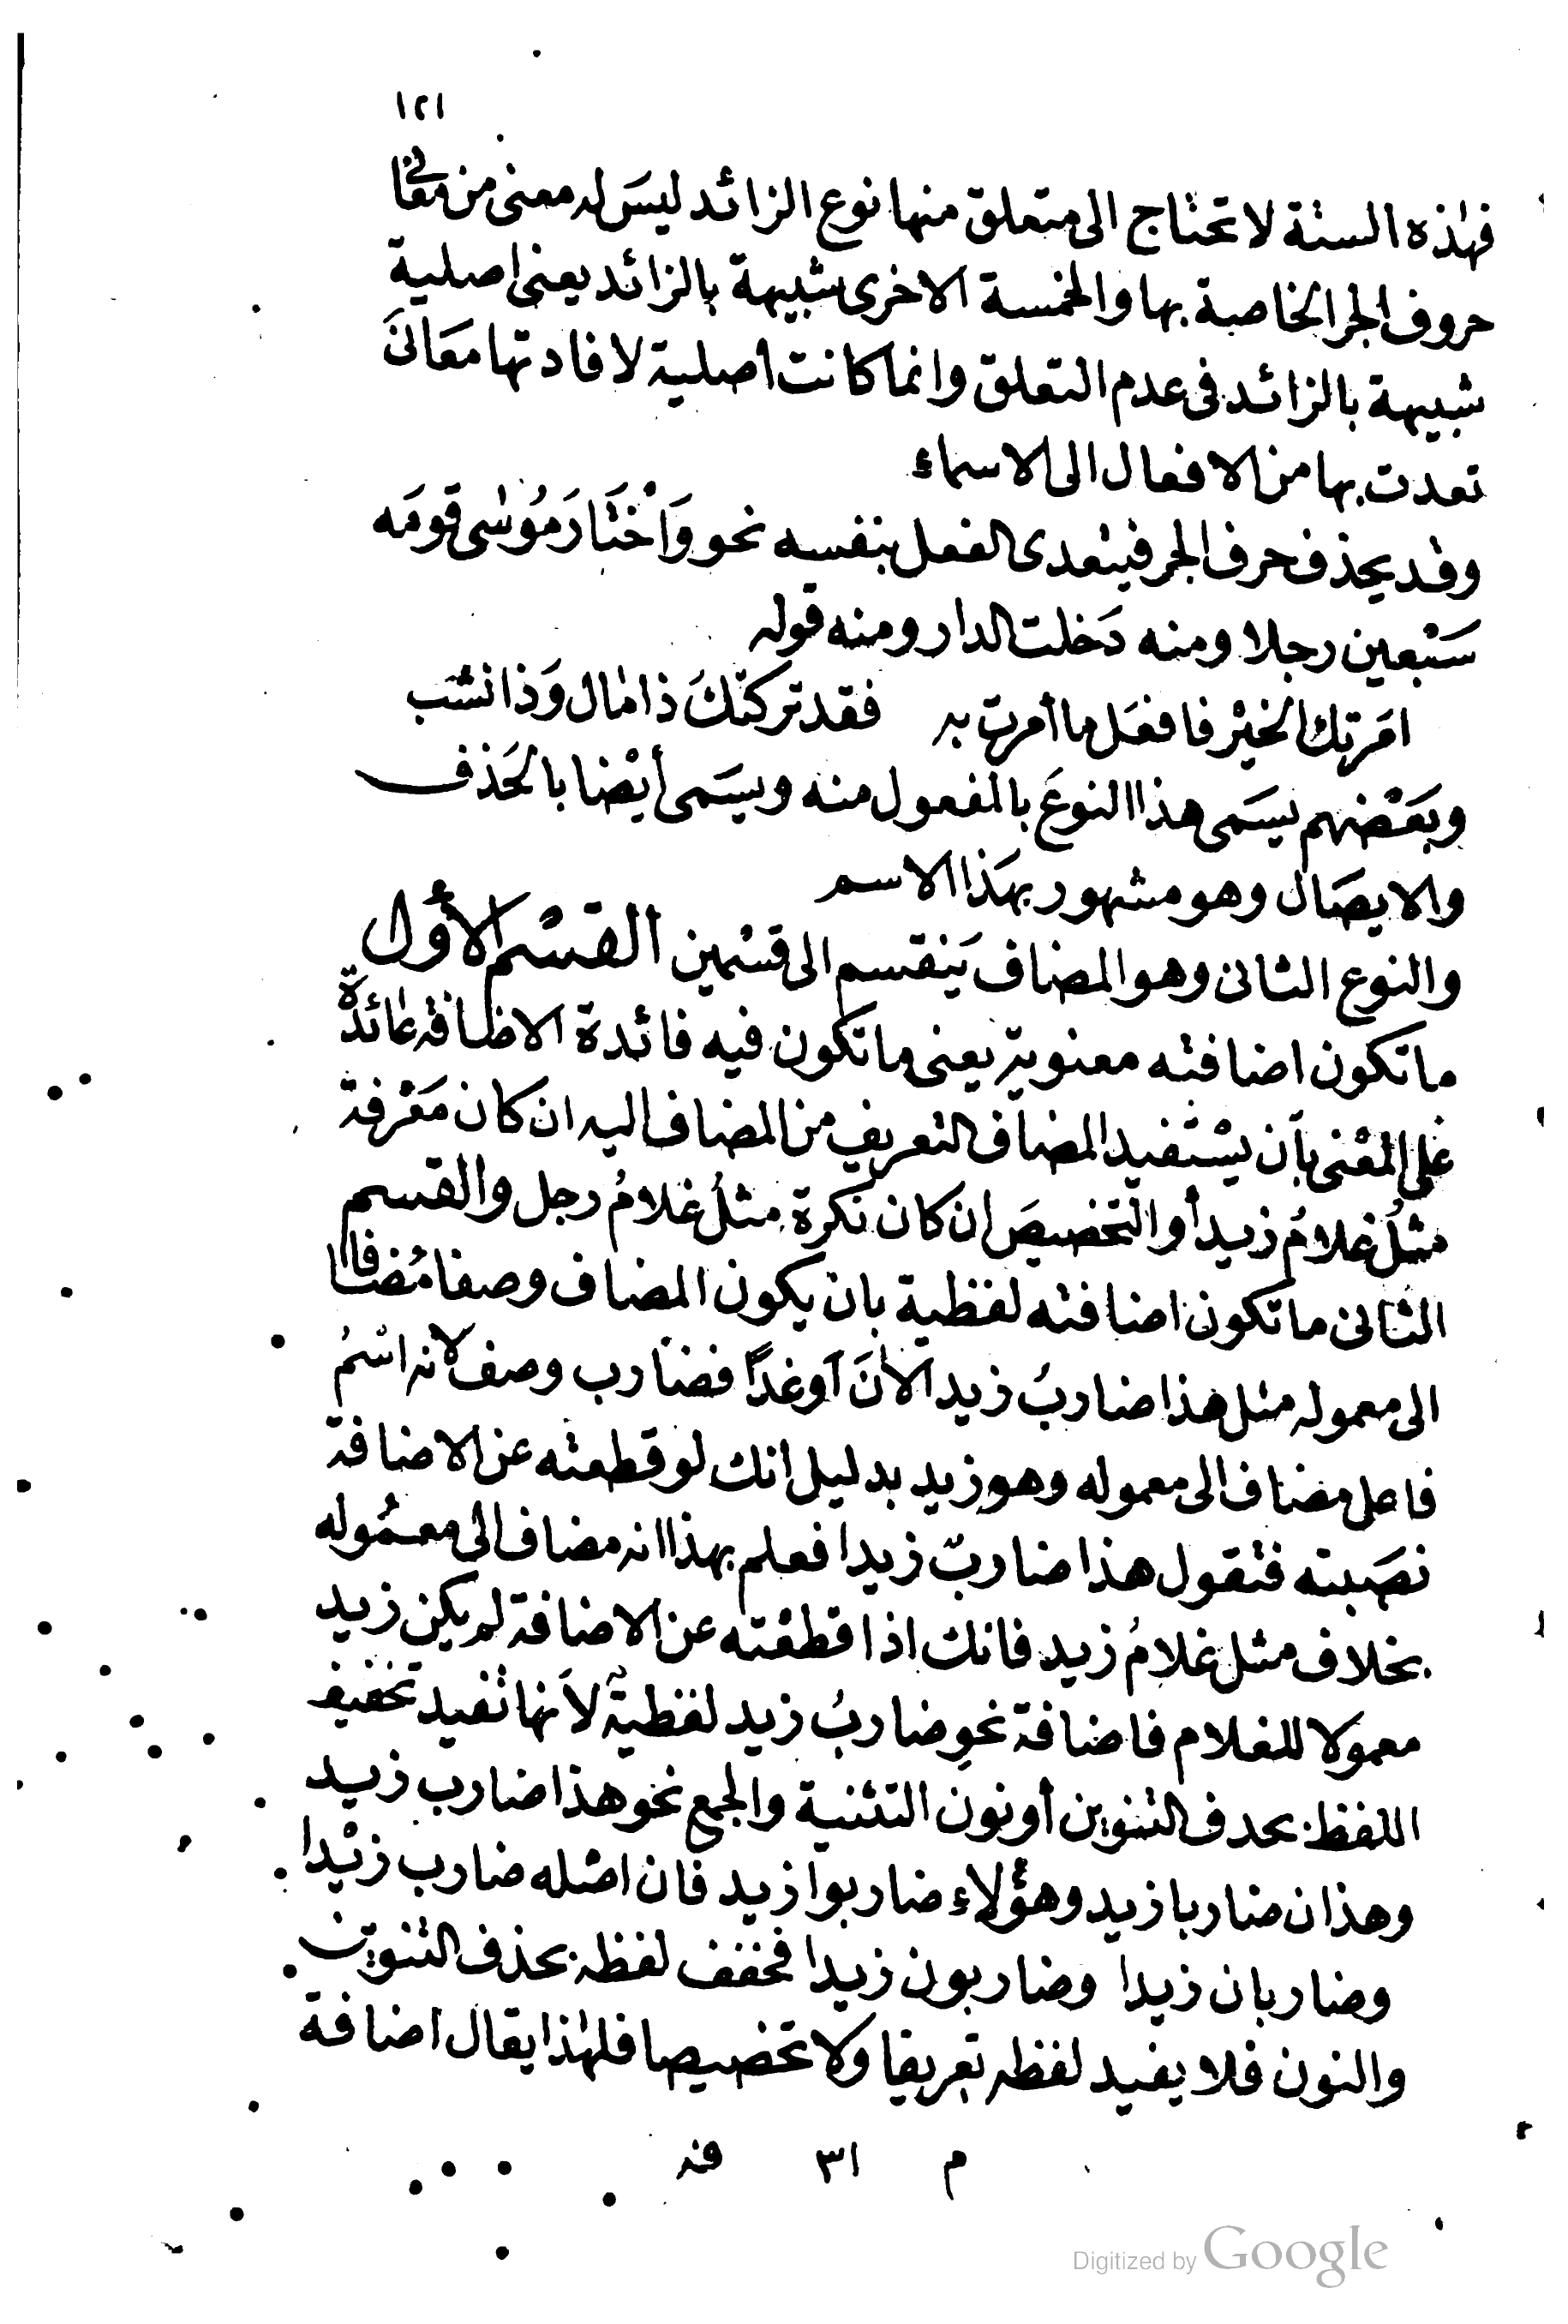 ١٢١
فهٰذه الستة لا تحتاج الى متعلق منها نوع الزائد ليسَ له معنى من معَانى
حروف الجر الخاصة بها والخمسة الاخرى شبيهة بالزائد يعنى اصلية
شبيهة بالزائد فى عدم التعلق وانما كانت اصلية لافادتها معَانىَ
تعدت بها من الافعال الى الاسماء
وقد يحذف حرف الجر فيتعدى الفعل بنفسه نحو وَاْخْتَارَ مُوْسٰى قومَه
سَبْعين رجلا ومنه دَخلت الدار ومنه قوله
امَرتك الخيْر فافعَل ما أمرت به فقد تركتكَ ذا مال وَذا نشب
وبَعْضهم يسَمى هذا النوعَ بالمفعول منه ويسَمى أيْضا بالحَذف
والايصَال وهو مشهور بهَذا الاسم
والنوع الثانى وهو المضاف يَنقسم الى قسْمين القسْم الأول
ما تكون اضافته معنوية يعنى ما تكون فيه فائدة الاضافة عائدَة
على المعْنى بأن يسْتفيد المضاف التعريف من المضاف اليه ان كان مَعْرفة
مثلُ غلامُ زيد أو التخصيصَ ان كان نكرة مثلُ غلامُ رجل والقسم
الثانى ما تكون اضافته لفظية بان يكون المضاف وصفا مُضافا
الى معموله مثل هذا ضاربُ زيد الآنَ أوغدًا فضارب وصف لانه اسْمُ
فاعل مضاف الى معموله وهو زيد بدليل انك لو قطعته عن الاضافة
نصَبته فتقول هذا ضاربٌ زيدا فعلم بهذا انه مضاف الى معمُوله
بخلاف مثل غلامُ زيد فانك اذا قطعْته عن الاضافة لم يكن زيد
معمولا للغلام فاضافة نحوِ ضاربُ زيد لفظيةٌ لأنها تفيد تخفيف
اللفظ بحدف التنوين أو نون التثنية والجمع نحو هذا ضارب زيد
وهذان ضاربا زيد وهؤلاء ضاربوا زيد فان اصْله ضارب زيْدا
وضاربان زيدا وضاربون زيدا فخفف لفظه بحذف التنوين
والنون فلا يفيد لفظه تعريفا ولا تخصيصا فلهٰذا يقال اضافة
م ٣١ فنه
Digitized by Google